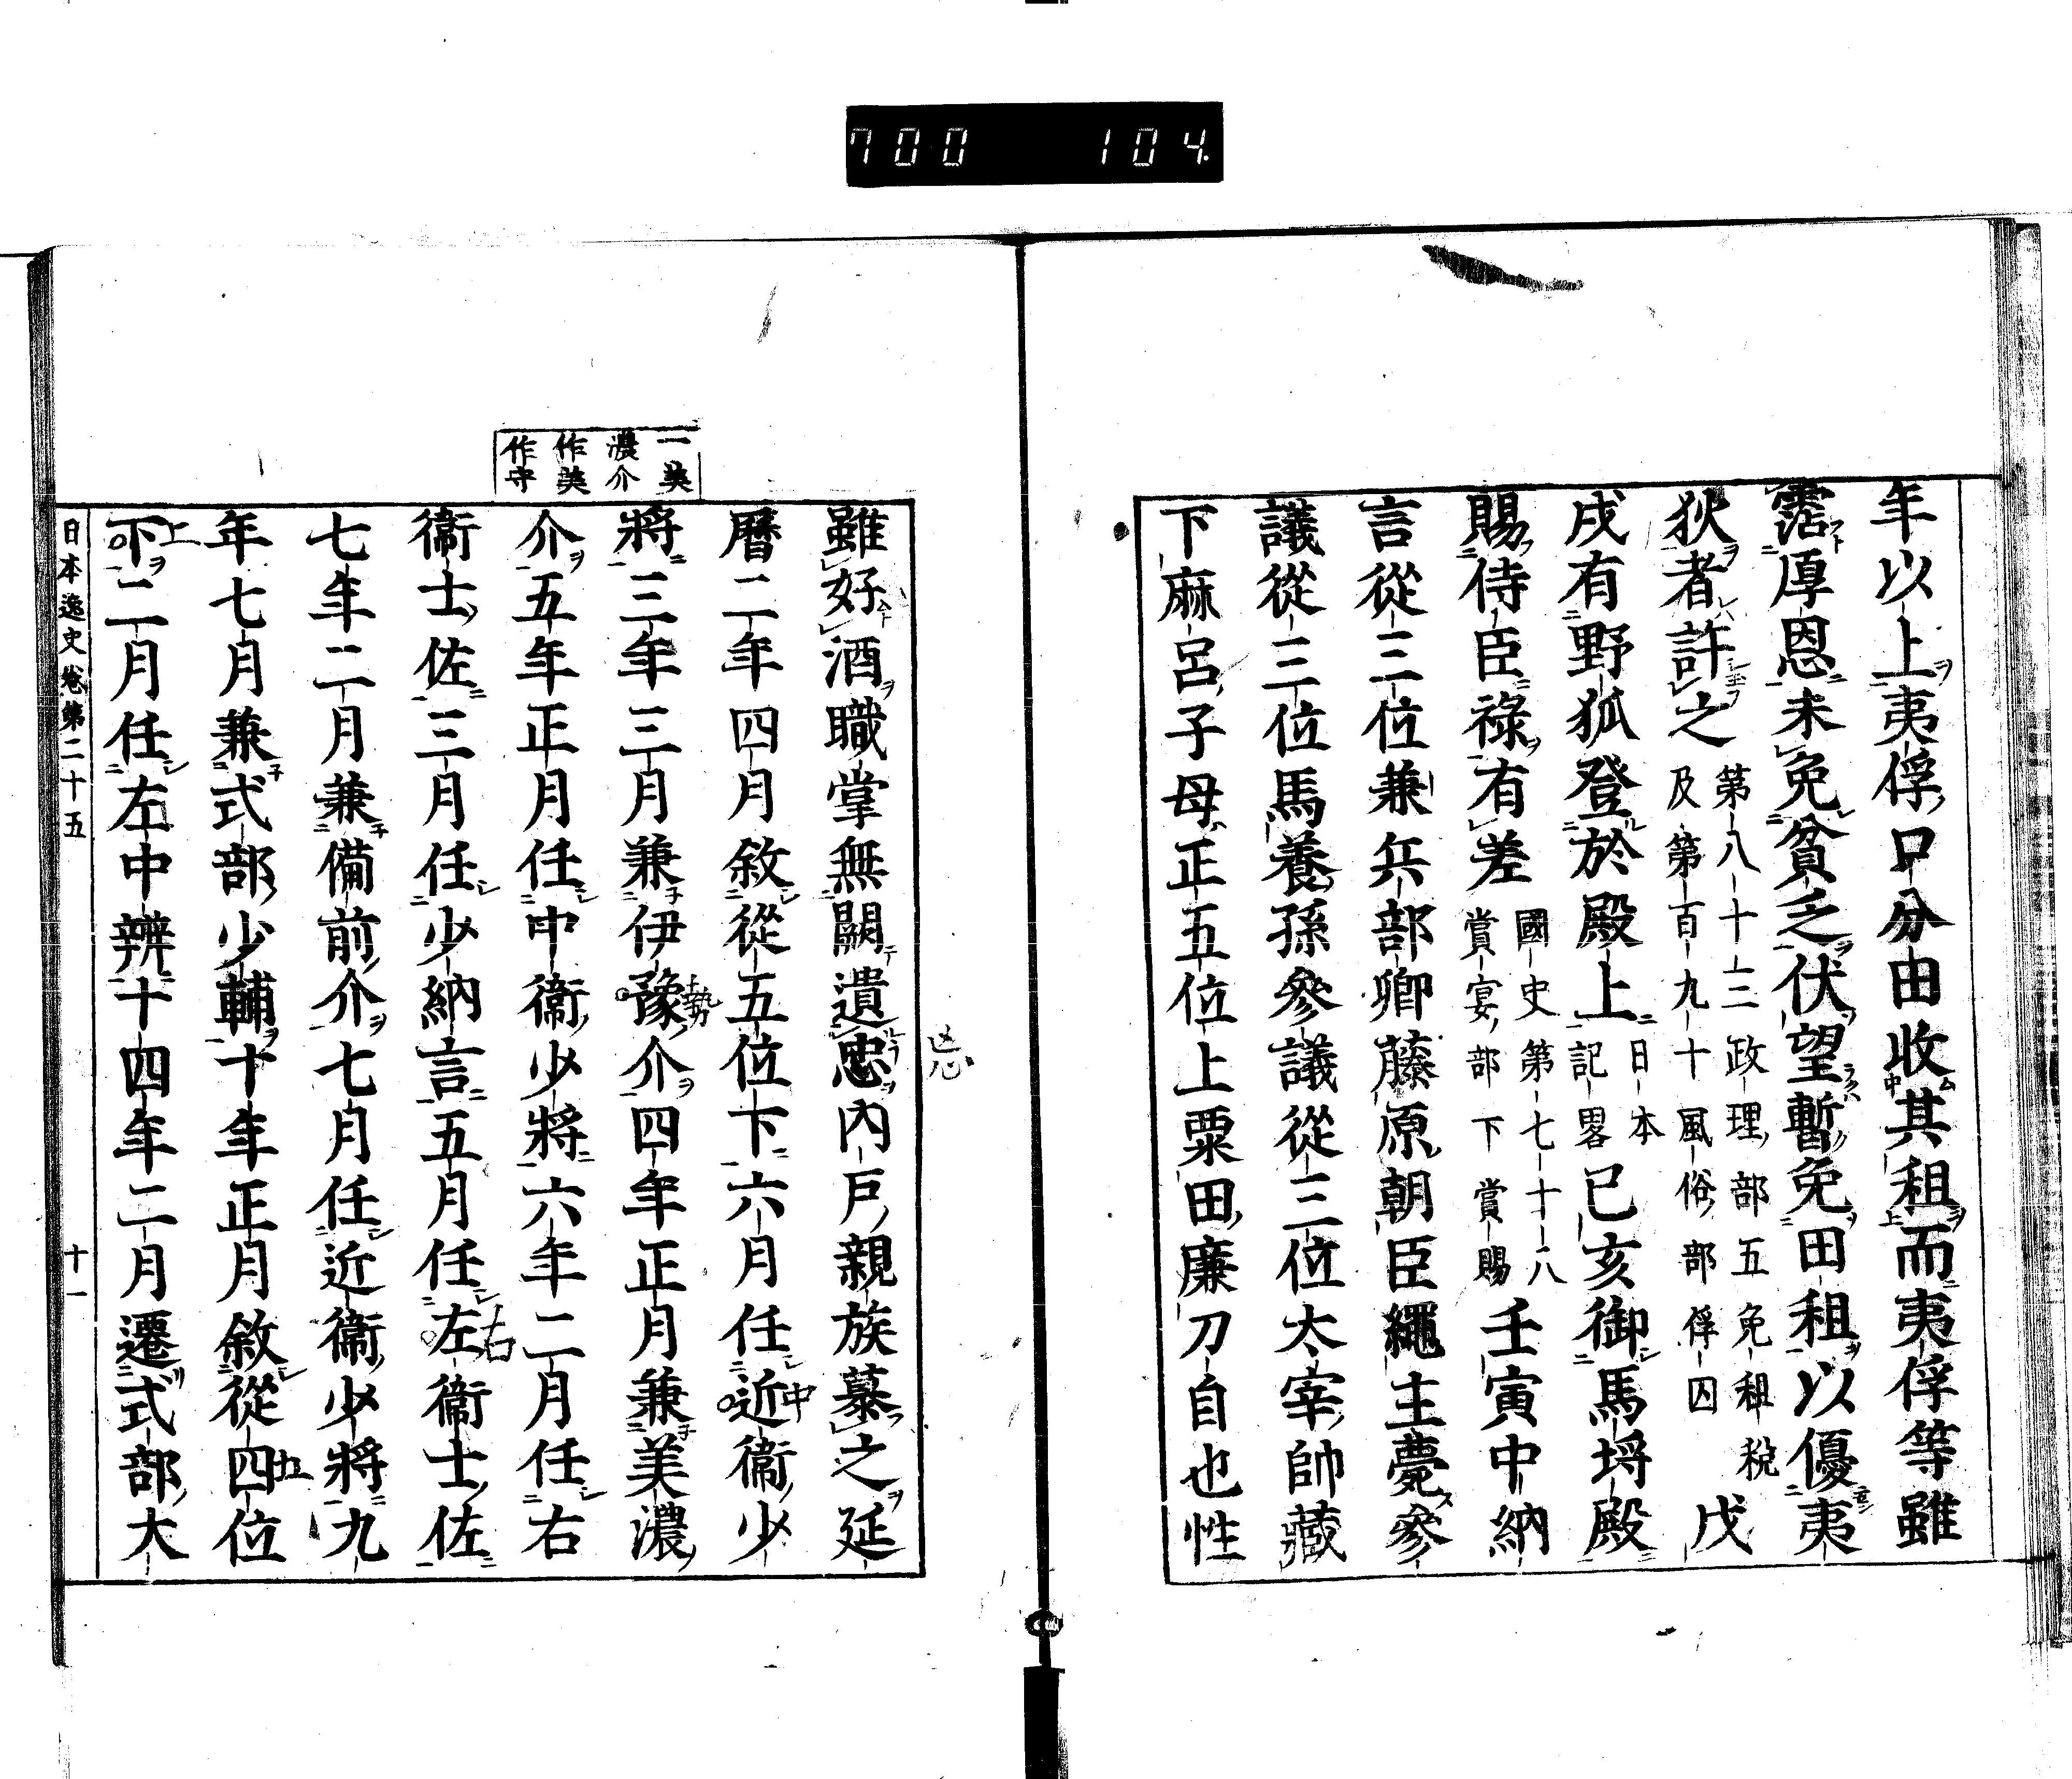 700 104.
年以上夷俘口分田收其租而夷俘等雖
霑厚恩未免貧乏伏望暫免田租以優夷
狄者許之第八十三政理部五免租稅
及第百九十風俗部俘囚戊
戌有野狐登於殿上日本
記畧己亥御馬埒殿
賜侍臣祿有差國史第七十八
賞宴部下賞賜壬寅中納
言從三位兼兵部卿藤原朝臣繩主薨參
議從三位馬養孫參議從三位太宰帥藏
下麻呂子母正五位上粟田廉刀自也性
一美
濃介
作美
作守
雖好酒職掌無闕遺忠內戶親族慕之延
忌
曆二年四月敘從五位下六月任近衞少
中
將三年三月兼伊豫介四年正月兼美濃
勢
介五年正月任中衞少將六年二月任右
衞士佐三月任少納言五月任左衞士佐
右
七年二月兼備前介七月任近衞少將九
年七月兼式部少輔十年正月敘從四位
五
下二月任左中辨十四年二月遷式部大
上
日本逸史卷第二十五 十一